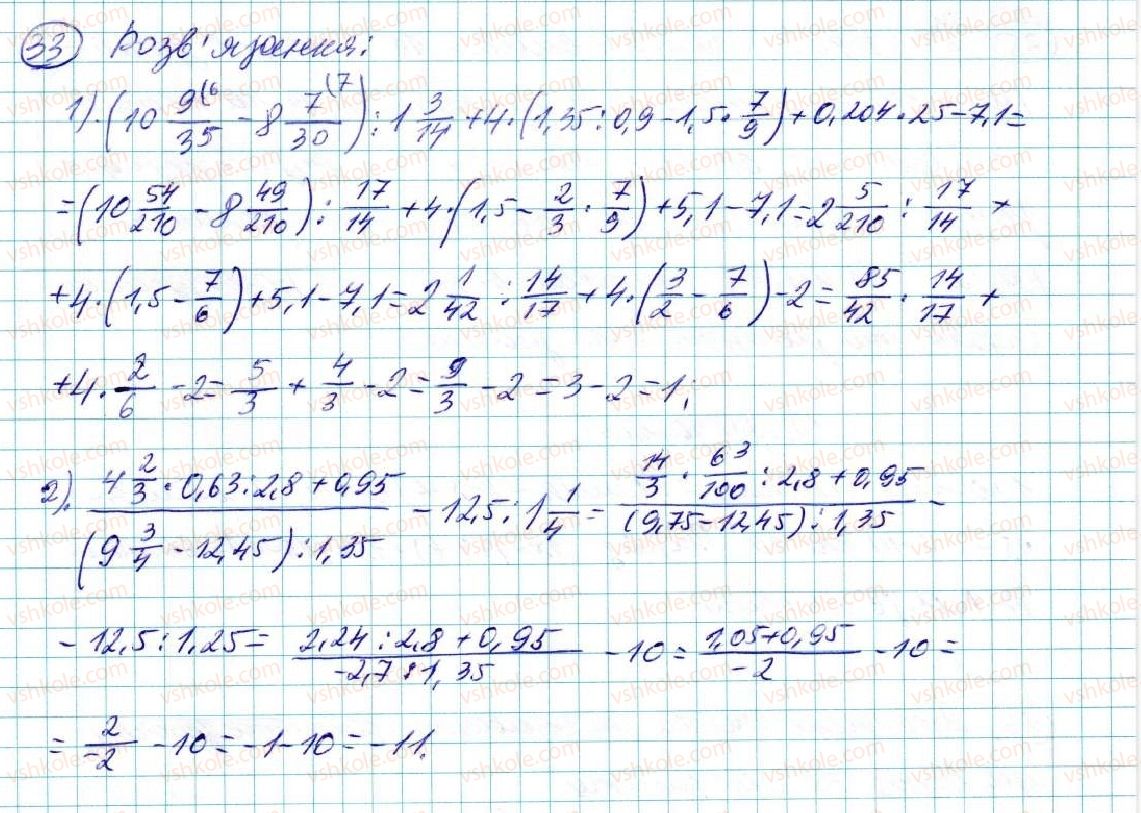 33 Розв'язання:
1).(10 9(6/35 - 8 7(7/30) : 1 3/14 + 4·(1,35:0,9-1,5·7/9)+0,204·25-7,1=
=(10 54/210 - 8 49/210) : 17/14 + 4·(1,5 - 2/3·7/9)+5,1-7,1=2 5/210 : 17/14 +
+4·(1,5 - 7/6)+5,1-7,1=2 1/42 : 14/17 + 4·(3/2 - 7/6)-2= 85/42 · 14/17 +
+4·2/6 -2= 5/3 + 4/3 -2= 9/3 -2=3-2=1;
2). (4 2/3·0,63:2,8+0,95)/((9 3/4 -12,45):1,35) -12,5:1 1/4 = (14/3 · 63/100 :2,8+0,95)/((9,75-12,45):1,35) -
-12,5:1,25= (2,24:2,8+0,95)/(-2,7:1,35) -10= (1,05+0,95)/(-2) -10=
= 2/-2 -10=-1-10=-11.
vshkole.com